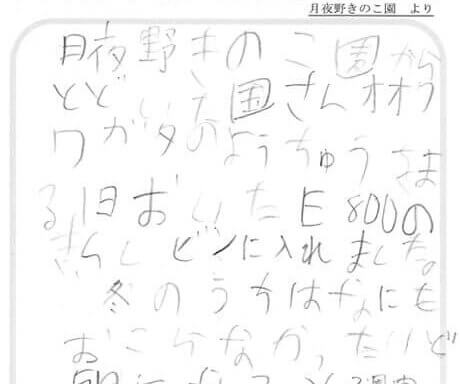 月夜野きのこ園　より
月夜野きのこ園から
とどいた国さんオオク
ワガタのようちゅうをま
る1日おいたE800の
きんしビンに入れました。
冬のうちはなにも
おこらなかったけど